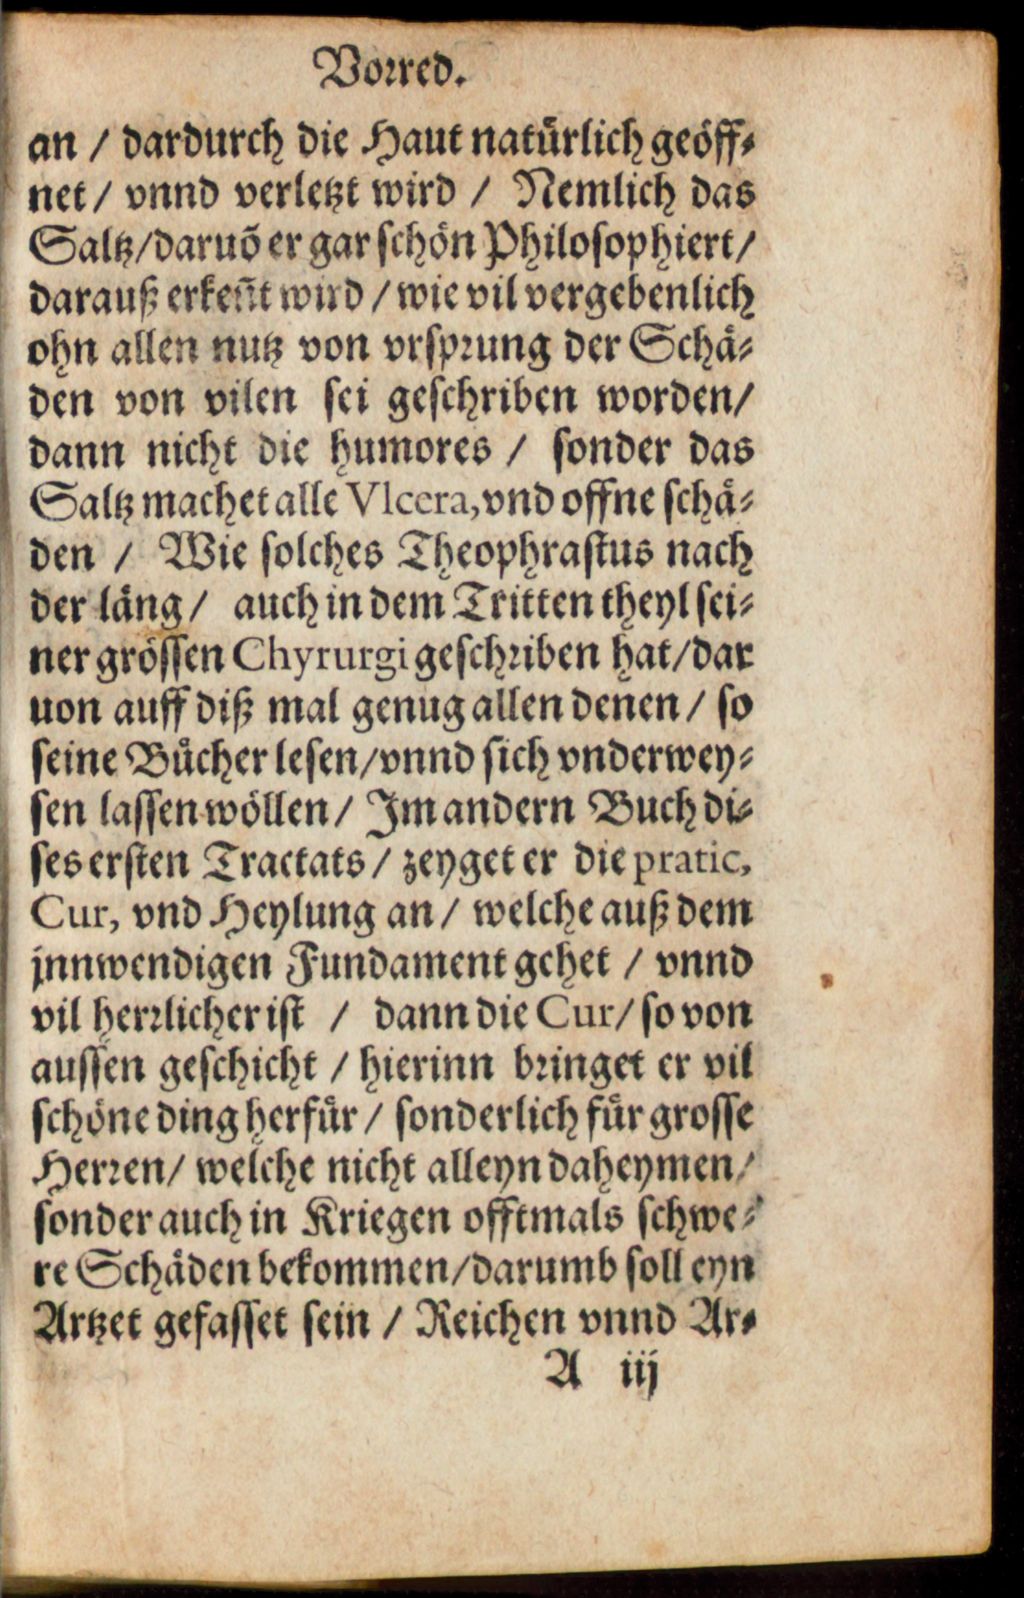 Vorred.
an / dardurch die Haut natürlich geöff⸗
net / vnnd verletzt wird / Nemlich das
Saltz/daruõ er gar schön Philosophiert/
darauß erkeñt wird / wie vil vergebenlich
ohn allen nutz von vrsprung der Schä⸗
den von vilen sei geschriben worden/
dann nicht die humores / sonder das
Saltz machet alle Vlcera, vnd offne schä⸗
den / Wie solches Theophrastus nach
der läng / auch in dem Tritten theyl sei⸗
ner grössen Chyrurgi geschriben hat/dar
uon auff diß mal genug allen denen / so
seine Bücher lesen/vnnd sich vnderwey⸗
sen lassen wöllen / Im andern Buch di⸗
ses ersten Tractats / zeyget er die pratic,
Cur, vnd Heylung an / welche auß dem
jnnwendigen Fundament gehet / vnnd
vil herrlicher ist / dann die Cur/ so von
aussen geschicht / hierinn bringet er vil
schöne ding herfür / sonderlich für grosse
Herren/ welche nicht alleyn daheymen/
sonder auch in Kriegen offtmals schwe⸗
re Schäden bekommen/darumb soll eyn
Artzet gefasset sein / Reichen vnnd Ar⸗
A iij